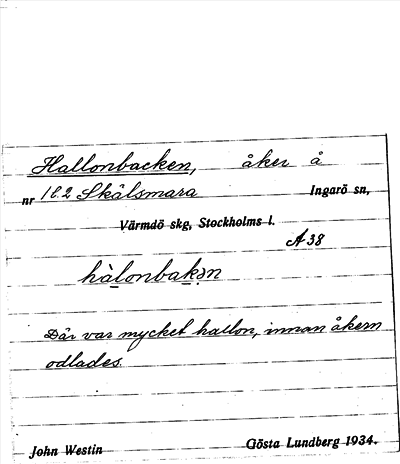 Hallonbacken, åker å
nr 1 l. 2 Skälsmara Ingarö sn,
Värmdö skg, Stockholms l.
A 38
hàlonbakən
Där var mycket hallon, innan åkern
odlades.
John Westin Gösta Lundberg 1934.